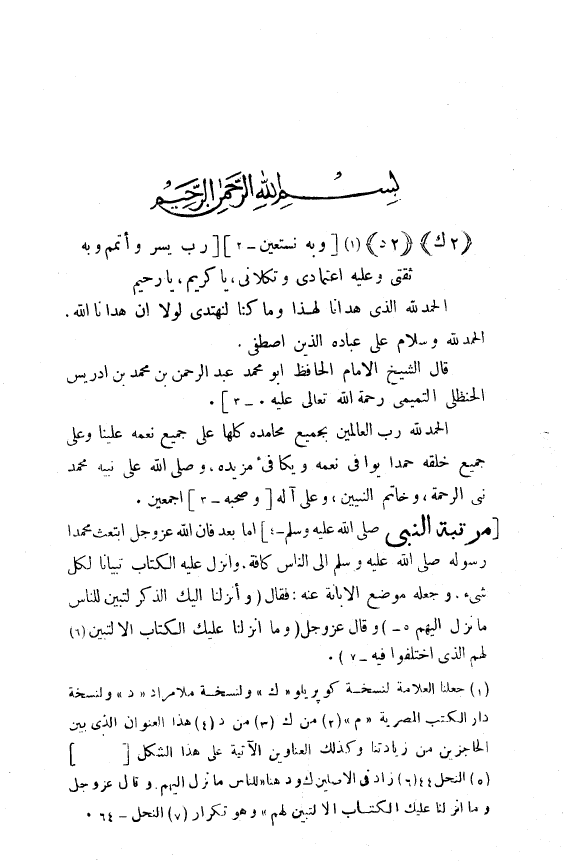 بسم الله الرحمن الرحيم
﴿٢ك﴾ ﴿٢د﴾ (١) [ وبه نستعين - ٢ ] [ رب يسر وأتمم وبه
ثقتى وعليه اعتمادى وتكلانى، ياكريم، يارحيم
الحمد لله الذى هدانا لهذا وماكنا لنهتدى لولا ان هدانا الله.
الحمد لله وسلام على عباده الذين اصطفى .
قال الشيخ الامام الحافظ ابو محمد عبد الرحمن بن محمد بن ادريس
الحنظلى التميمى رحمة الله تعالى عليه . - ٣ ] .
الحمد لله رب العالمين بجميع محامده كلها على جميع نعمه علينا وعلى
جميع خلقه حمدا يوافى نعمه ويكافئ مزيده. وصلى الله على نبيه محمد
نبى الرحمة، وخاتم النبيين، وعلى آله [ وصحبه - ٣ ] اجمعين .
[مرتبة النبى صلى الله عليه وسلم - ٤] اما بعد فان الله عزوجل ابتعث محمدا
رسوله صلى الله عليه وسلم الى الناس كافة. وانزل عليه الكتاب تبيانا لكل
شىء. وجعله موضع الابانة عنه : فقال ( وأنزلنا اليك الذكر لتبين للناس
مانزل اليهم ٥ - ) وقال عزوجل ( وما انزلنا عليك الكتاب الا لتبين (٦)
لهم الذى اختلفوا فيه - ٧ ) .
(١) جعلنا العلامة لنسخة كوبريلو « ك » ولنسخة ملامراد « د » ولنسخة
دار الكتب المصرية « م » (٢) من ك (٣) من د (٤) هذا العنوان الذى بين
الحاجزين من زيادتنا وكذلك العناوين الآتية على هذا الشكل [ ]
(٥) النحل ٤٤ (٦) زاد فى الاصلين ك ود هنا « للناس مانزل اليهم. وقال عزوجل
وما انزلنا عليك الكتاب الا لتبين لهم » وهو تكرار (٧) النحل - ٦٤ .